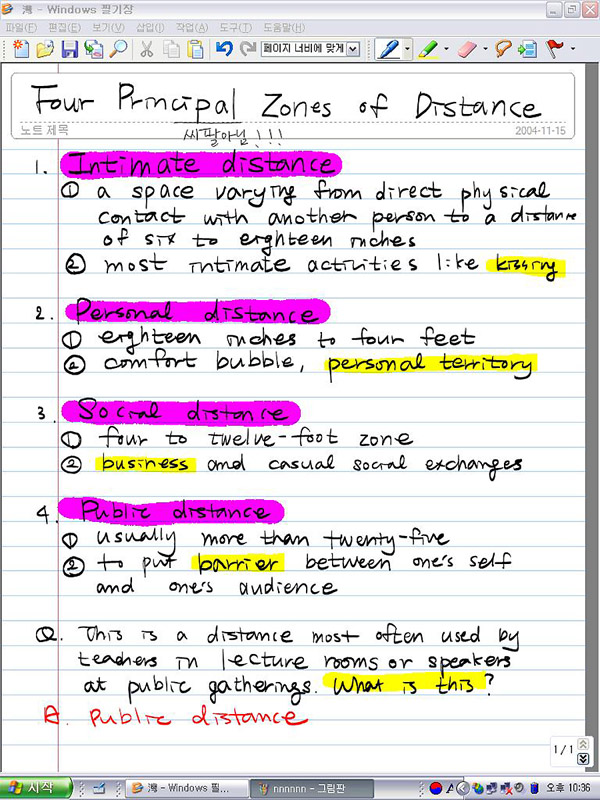 灣 - Windows 필기장
파일(F) 편집(E) 보기(V) 삽입(I) 작업(A) 도구(T) 도움말(H)
페이지 너비에 맞게
Four Principal Zones of Distance
노트 제목
2004-11-15
1. Intimate distance
① a space varying from direct physical
contact with another person to a distance
of six to eighteen inches
② most intimate activities like kissing
2. Personal distance
① eighteen inches to four feet
② comfort bubble, personal territory
3. Social distance
① four to twelve-foot zone
② business and casual social exchanges
4. Public distance
① usually more than twenty-five
② to put barrier between one's self
and one's audience
Q. This is a distance most often used by
teachers in lecture rooms or speakers
at public gatherings. What is this?
A. Public distance
1/1
시작
灣 - Windows 필...
nnnnnn - 그림판
A
오후 10:36